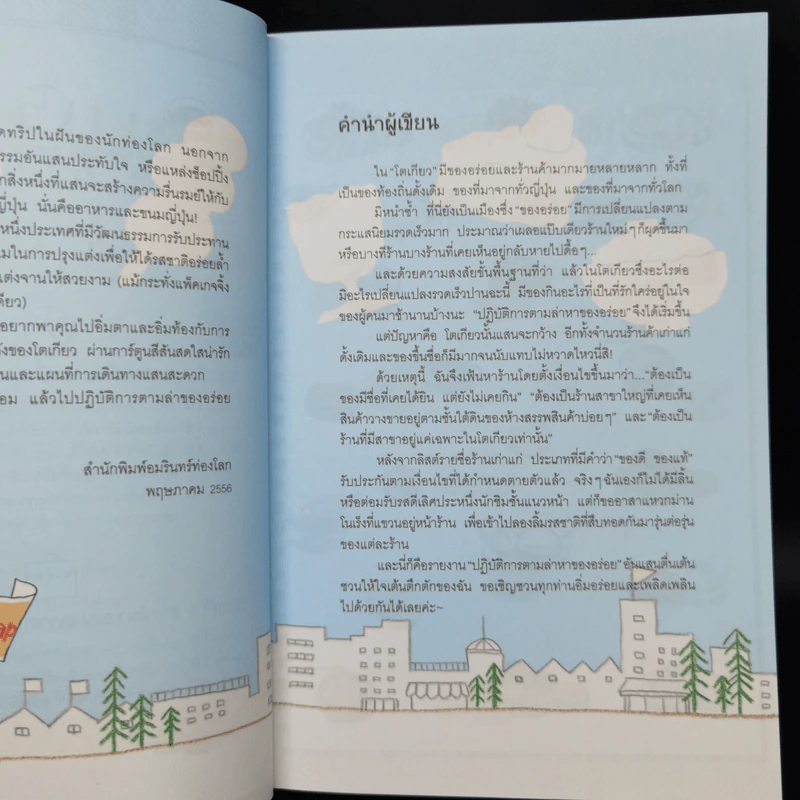 ดทริปในฝันของนักท่องโลก นอกจาก
รรมอันแสนประทับใจ หรือแหล่งช็อปปิ้ง
กสิ่งหนึ่งที่แสนจะสร้างความรื่นรมย์ให้กับ
ญี่ปุ่น นั่นคืออาหารและขนมญี่ปุ่น!
หนึ่งประเทศที่มีวัฒนธรรมการรับประทาน
มในการปรุงแต่งเพื่อให้ได้รสชาติอร่อยล้ำ
แต่งจานให้สวยงาม (แม้กระทั่งแพ็คเกจจิ้ง
ดียว)
อยากพาคุณไปอิ่มตาและอิ่มท้องกับการ
ังของโตเกียว ผ่านการ์ตูนสีสันสดใสน่ารัก
นและแผนที่การเดินทางแสนสะดวก
อม แล้วไปปฏิบัติการตามล่าของอร่อย
สำนักพิมพ์อมรินทร์ท่องโลก
พฤษภาคม 2556
คำนำผู้เขียน
ใน "โตเกียว" มีของอร่อยและร้านค้ามากมายหลายหลาก ทั้งที่
เป็นของท้องถิ่นดั้งเดิม ของที่มาจากทั่วญี่ปุ่น และของที่มาจากทั่วโลก
มิหนำซ้ำ ที่นี่ยังเป็นเมืองซึ่ง "ของอร่อย" มีการเปลี่ยนแปลงตาม
กระแสนิยมรวดเร็วมาก ประมาณว่าเผลอแป๊บเดียวร้านใหม่ๆ ก็ผุดขึ้นมา
หรือบางทีร้านบางร้านที่เคยเห็นอยู่กลับหายไปดื้อๆ...
และด้วยความสงสัยขั้นพื้นฐานที่ว่า แล้วในโตเกียวซึ่งอะไรต่อ
มิอะไรเปลี่ยนแปลงรวดเร็วปานฉะนี้ มีของกินอะไรที่เป็นที่รักใคร่อยู่ในใจ
ของผู้คนมาช้านานบ้างนะ "ปฏิบัติการตามล่าหาของอร่อย" จึงได้เริ่มขึ้น
แต่ปัญหาคือ โตเกียวนั้นแสนจะกว้าง อีกทั้งจำนวนร้านค้าเก่าแก่
ดั้งเดิมและของขึ้นชื่อก็มีมากจนนับแทบไม่หวาดไหวนี่สิ!
ด้วยเหตุนี้ ฉันจึงเฟ้นหาร้านโดยตั้งเงื่อนไขขึ้นมาว่า..."ต้องเป็น
ของมีชื่อที่เคยได้ยิน แต่ยังไม่เคยกิน" "ต้องเป็นร้านสาขาใหญ่ที่เคยเห็น
สินค้าวางขายอยู่ตามชั้นใต้ดินของห้างสรรพสินค้าบ่อยๆ" และ "ต้องเป็น
ร้านที่มีสาขาอยู่แค่เฉพาะในโตเกียวเท่านั้น"
หลังจากลิสต์รายชื่อร้านเก่าแก่ ประเภทที่มีคำว่า "ของดี ของแท้"
รับประกันตามเงื่อนไขที่ได้กำหนดตายตัวแล้ว จริงๆ ฉันเองก็ไม่ได้มีลิ้น
หรือต่อมรับรสดีเลิศประหนึ่งนักชิมชั้นแนวหน้า แต่ก็ขออาสาแหวกม่าน
โนเร็งที่แขวนอยู่หน้าร้าน เพื่อเข้าไปลองลิ้มรสชาติที่สืบทอดกันมารุ่นต่อรุ่น
ของแต่ละร้าน
และนี่ก็คือรายงาน "ปฏิบัติการตามล่าหาของอร่อย" อันแสนตื่นเต้น
ชวนให้ใจเต้นตึกตักของฉัน ขอเชิญชวนทุกท่านอิ่มอร่อยและเพลิดเพลิน
ไปด้วยกันได้เลยค่ะ~